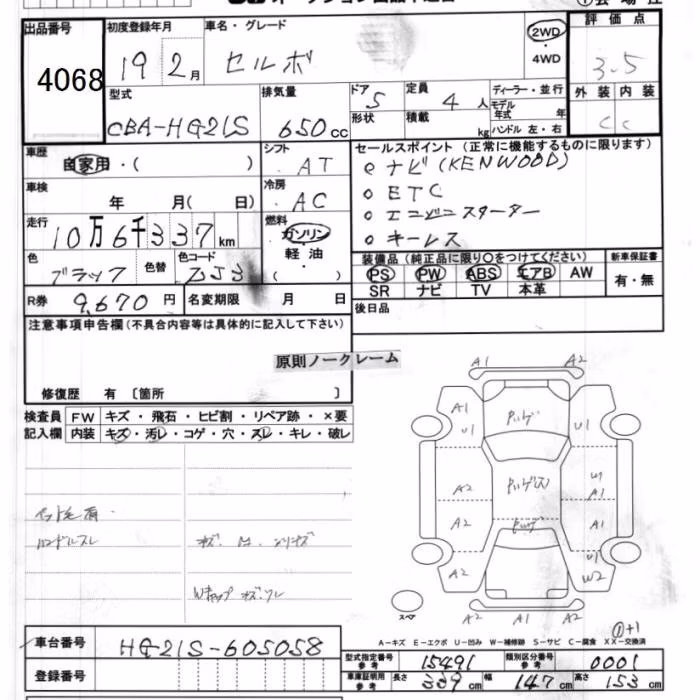 出品番号
4068
初度登録年月
19 2月
車名・グレード
セルボ
2WD
・
4WD
評価点
3.5
外装 内装
C C
型式
CBA-HG21S
排気量
650cc
ドア 5
形状
定員 4人
積載 kg
ディーラー・並行
モデル年式 年
ハンドル 左・右
車歴
自家用・( )
車検
年 月( 日)
走行
10万6千337km
色
ブラック
色替
色コード
ZJ3
R券
9,670円
名変期限 月 日
シフト
AT
冷房
AC
燃料
ガソリン
・
軽油
・
( )
セールスポイント (正常に機能するものに限ります)
ナビ(KENWOOD)
ETC
エンジンスターター
キーレス
装備品 (純正品に限り○をつけてください)
PS PW ABS エアB AW
SR ナビ TV 本革
新車保証書
有・無
後日品
注意事項申告欄(不具合内容等は具体的に記入して下さい)
原則ノークレーム
修復歴 有 〔箇所 〕
検査員記入欄
FW キズ・飛石・ヒビ割・リペア跡・×要
内装 キズ・汚レ・コゲ・穴・スレ・キレ・破レ
ペット毛有
ハンドルスレ
Wキャップ キズ.ワレ
A1 A2
A1 U1
U1
A2
A2
A1
A1
U1
A2 W2
A2 A1 A2
スペア
①+1
A−キズ E−エクボ U−凹み W−補修跡 S−サビ C−腐食 XX−交換済
車台番号
HG21S-605058
登録番号
型式指定番号 参考 15491
類別区分番号 参考 0001
車庫証明用 参考 長さ 339cm 幅 147cm 高さ 153cm